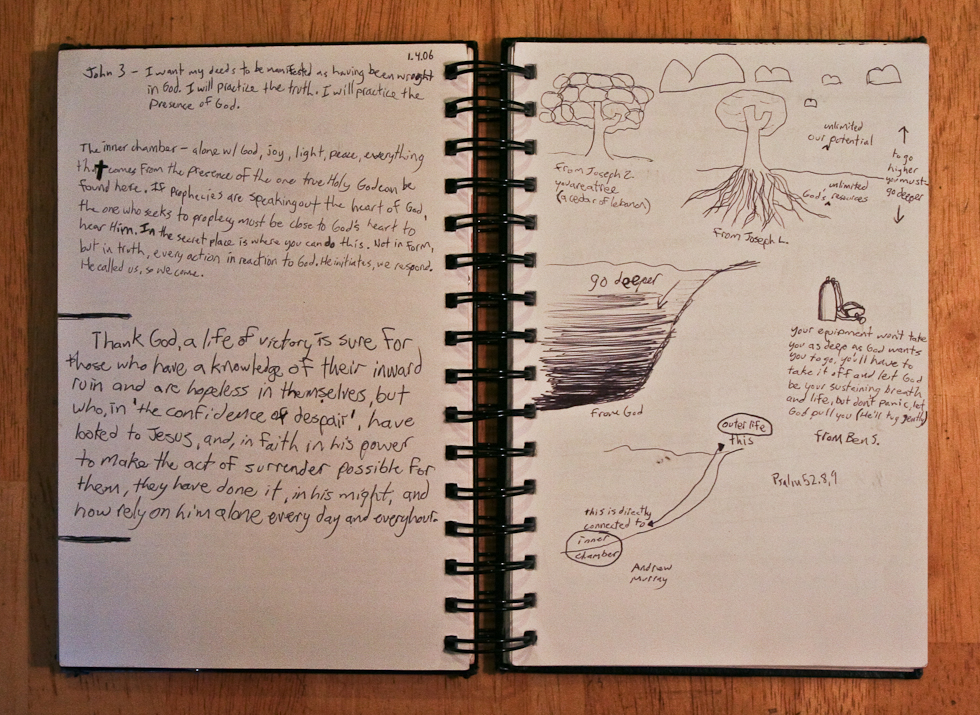 1.4.06
John 3 - I want my deeds to be manifested as having been wrought
in God. I will practice the truth. I will practice the
presence of God.
The inner chamber - alone w/ God, joy, light, peace, everything
that comes from the presence of the one true Holy God can be
found here. If prophecies are speaking out the heart of God,
the one who seeks to prophecy must be close to God's heart to
hear Him. In the secret place is where you can do this. Not in form,
but in truth, every action in reaction to God. He initiates, we respond.
He called us, so we come.
Thank God, a life of victory is sure for
those who have a knowledge of their inward
ruin and are hopeless in themselves, but
who, in 'the confidence of despair', have
looked to Jesus, and, in faith in his power
to make the act of surrender possible for
them, they have done it, in his might, and
now rely on him alone every day and every hour.
from Joseph Z.
you are a tree
(a cedar of lebanon)
unlimited
our potential
unlimited
God's resources
to go
higher
you must
go deeper
from Joseph L.
go deeper
From God
your equipment won't take
you as deep as God wants
you to go, you'll have to
take it off and let God
be your sustaining breath
and life, but don't panic, let
God pull you (He'll tug gently)
from Ben S.
outer life
this
Psalm 52.8,9
this is directly
connected to
inner
chamber
Andrew
Murray